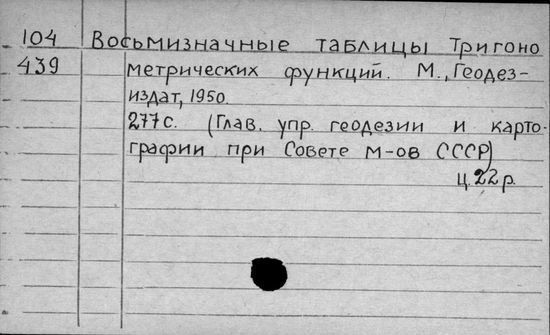 104 Восьмизначные таблицы Тригоно
439 метрических функций. М., Геодез-
издат, 1950.
277с. (Глав. упр. геодезии и карто-
графии при Совете М-ов СССР)
ц. 22 р.